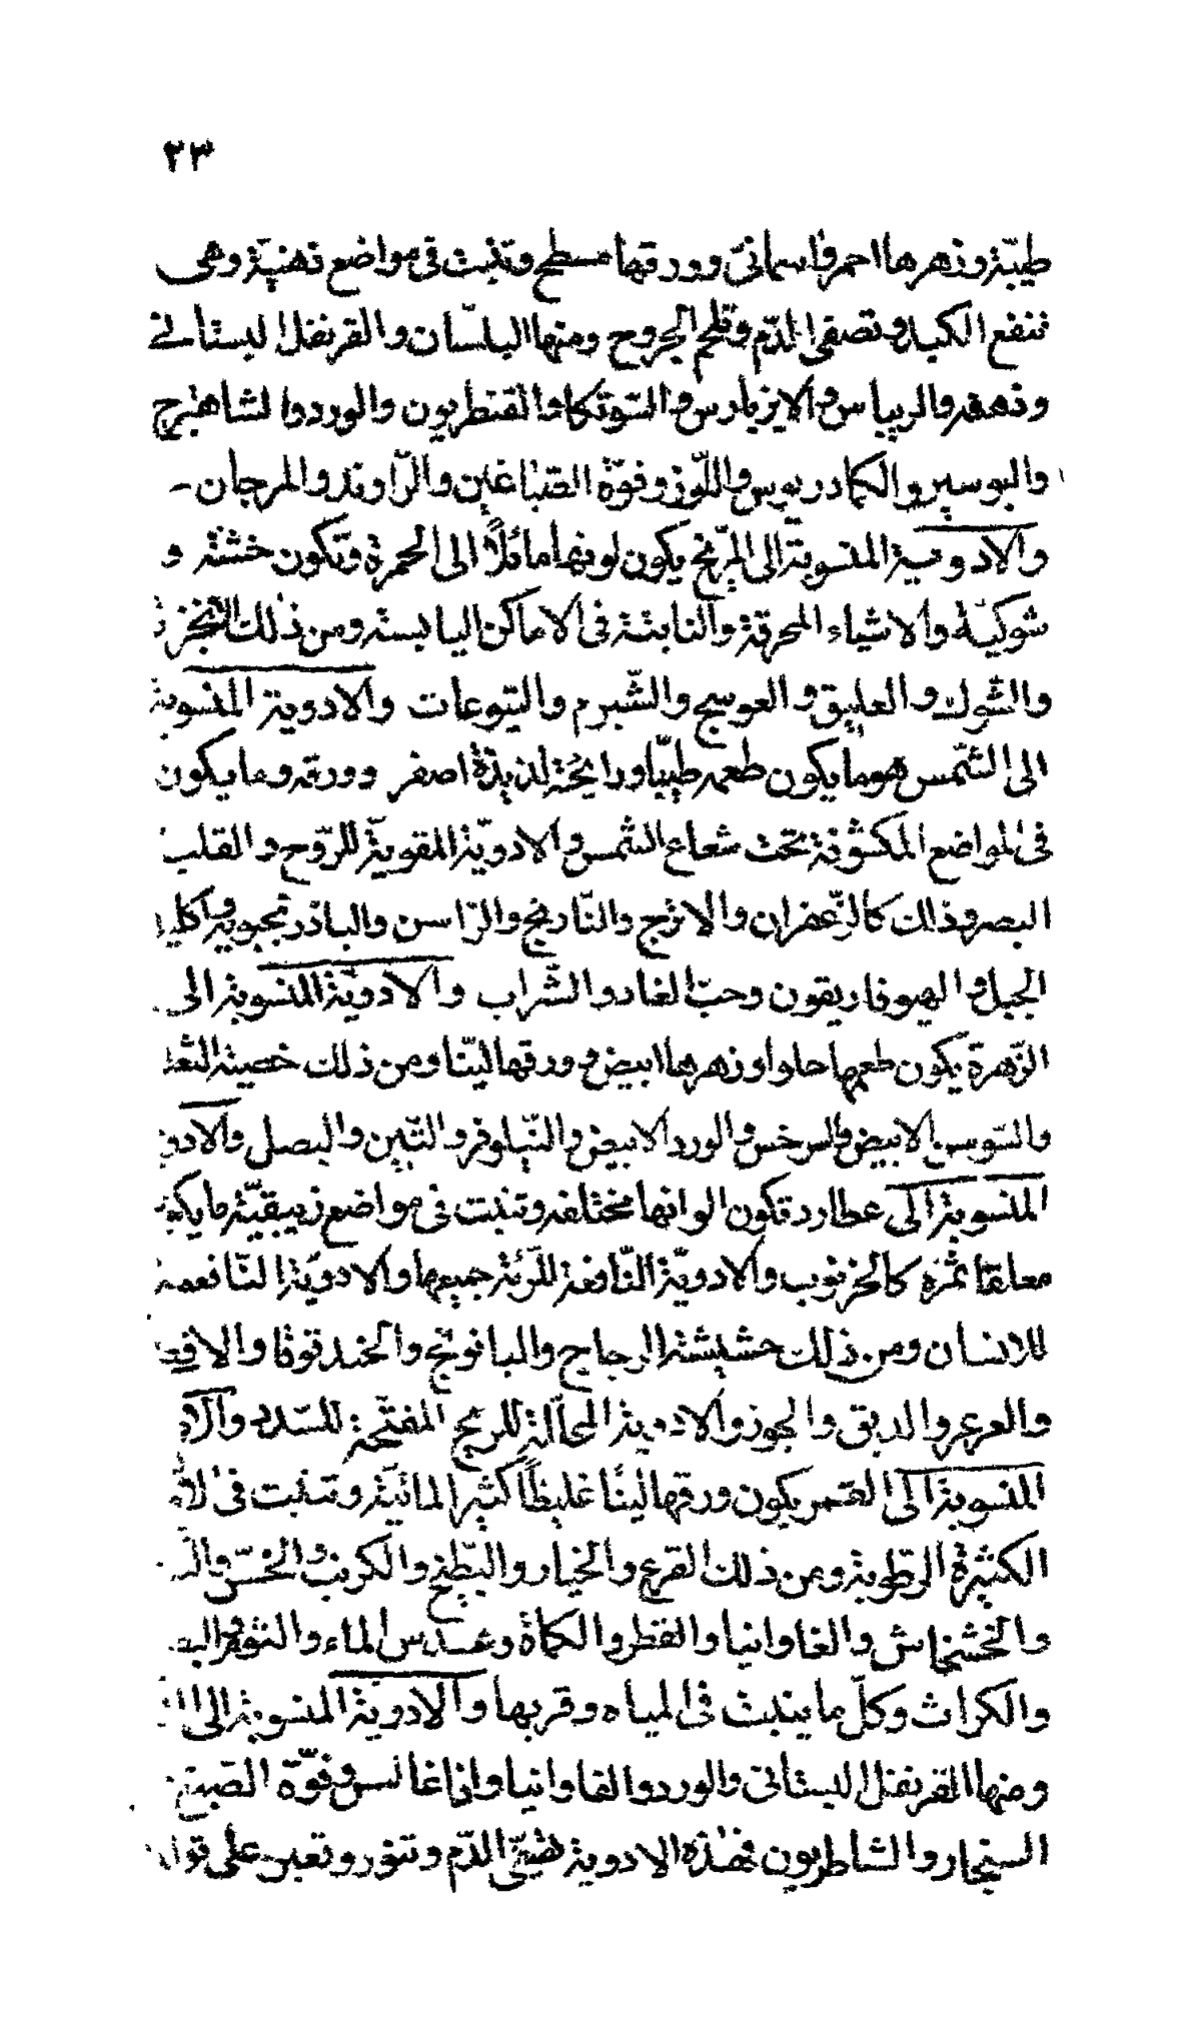 ٢٣
طيّبة وزهرها احمر واسمانىّ وورقها مسطح وتنبت فى مواضع دهنيّة وهى
تنفع الكبد وتصفى الدّم وتلحم الجروح ومنها البلسّان والقرنفل البستانى
والريباس والايزبارس والقنطريون والورد والشاهترج
والبوسير والكمادريوس واللّوز وفوّة الصّباغين والرّاوند والمرجان -
والادوية المنسوبة الى المرّيخ يكون لونها مائلاً الى الحمرة وتكون خشنة و
شوكيّة والاشياء المحرقة والنابتة فى الاماكن اليابسة ومن ذلك
والشّوك والعليق والعوسج والشّبرم واليتوعات والادوية المنسوبة
الى الشّمس هو ما يكون طعمه طيّبا ورايحة لذيذة اصفر وورقه وما يكون
فى المواضع المكشوفة تحت شعاع الشّمس والادويّة المقويّة للرّوح والقلب
البصر وذلك كالزّعفران والاترج والنّارنج والرّاسن والباذرنجبويه واكليل
الجبل والهيوفاريقون وحبّ الغار والشّراب والادويّة المنسوبة الى
الزّهرة يكون طعمها حلوا وزهرها ابيض وورقها ليّنا ومن ذلك خصية الثعلب
والسّوسن الابيض والسرخس والورد الابيض والنّيلوفر والتّين والبصل والادوية
المنسوبة الى عطارد تكون الوانها مختلفة وتنبت فى مواضع زيبقيّة ما يكون
معلقا ثمره كالخرنوب والادويّة النّافعة للرّئة جميعها والادويّة النّافعة
للانسان ومن ذلك حشيشة الزجاج والبابونج والحندقوقا
والعرعر والدبق والجوز والادوية المحللة للريح المفتّحة للسّدد
المنسوبة الى القمر يكون ورقها ليّنا غليظاً كثير المائيّة وتنبت فى
الكثيرة الرّطوبة ومن ذلك القرع والخيار والبطّيخ والكرنب والخسّ
والخشخاش والفاوانيا والفطر والكمأة وعدس الماء
والكراث وكلّ ما ينبت فى المياه وقربها والادويّة المنسوبة الى
ومنها القرنفل البستانى والورد والفاوانيا واناغالس وفوّة الصّبغ
السنجار والشاطريون فهذه الادوية تهيّج الدّم وتنوّر وتعين على